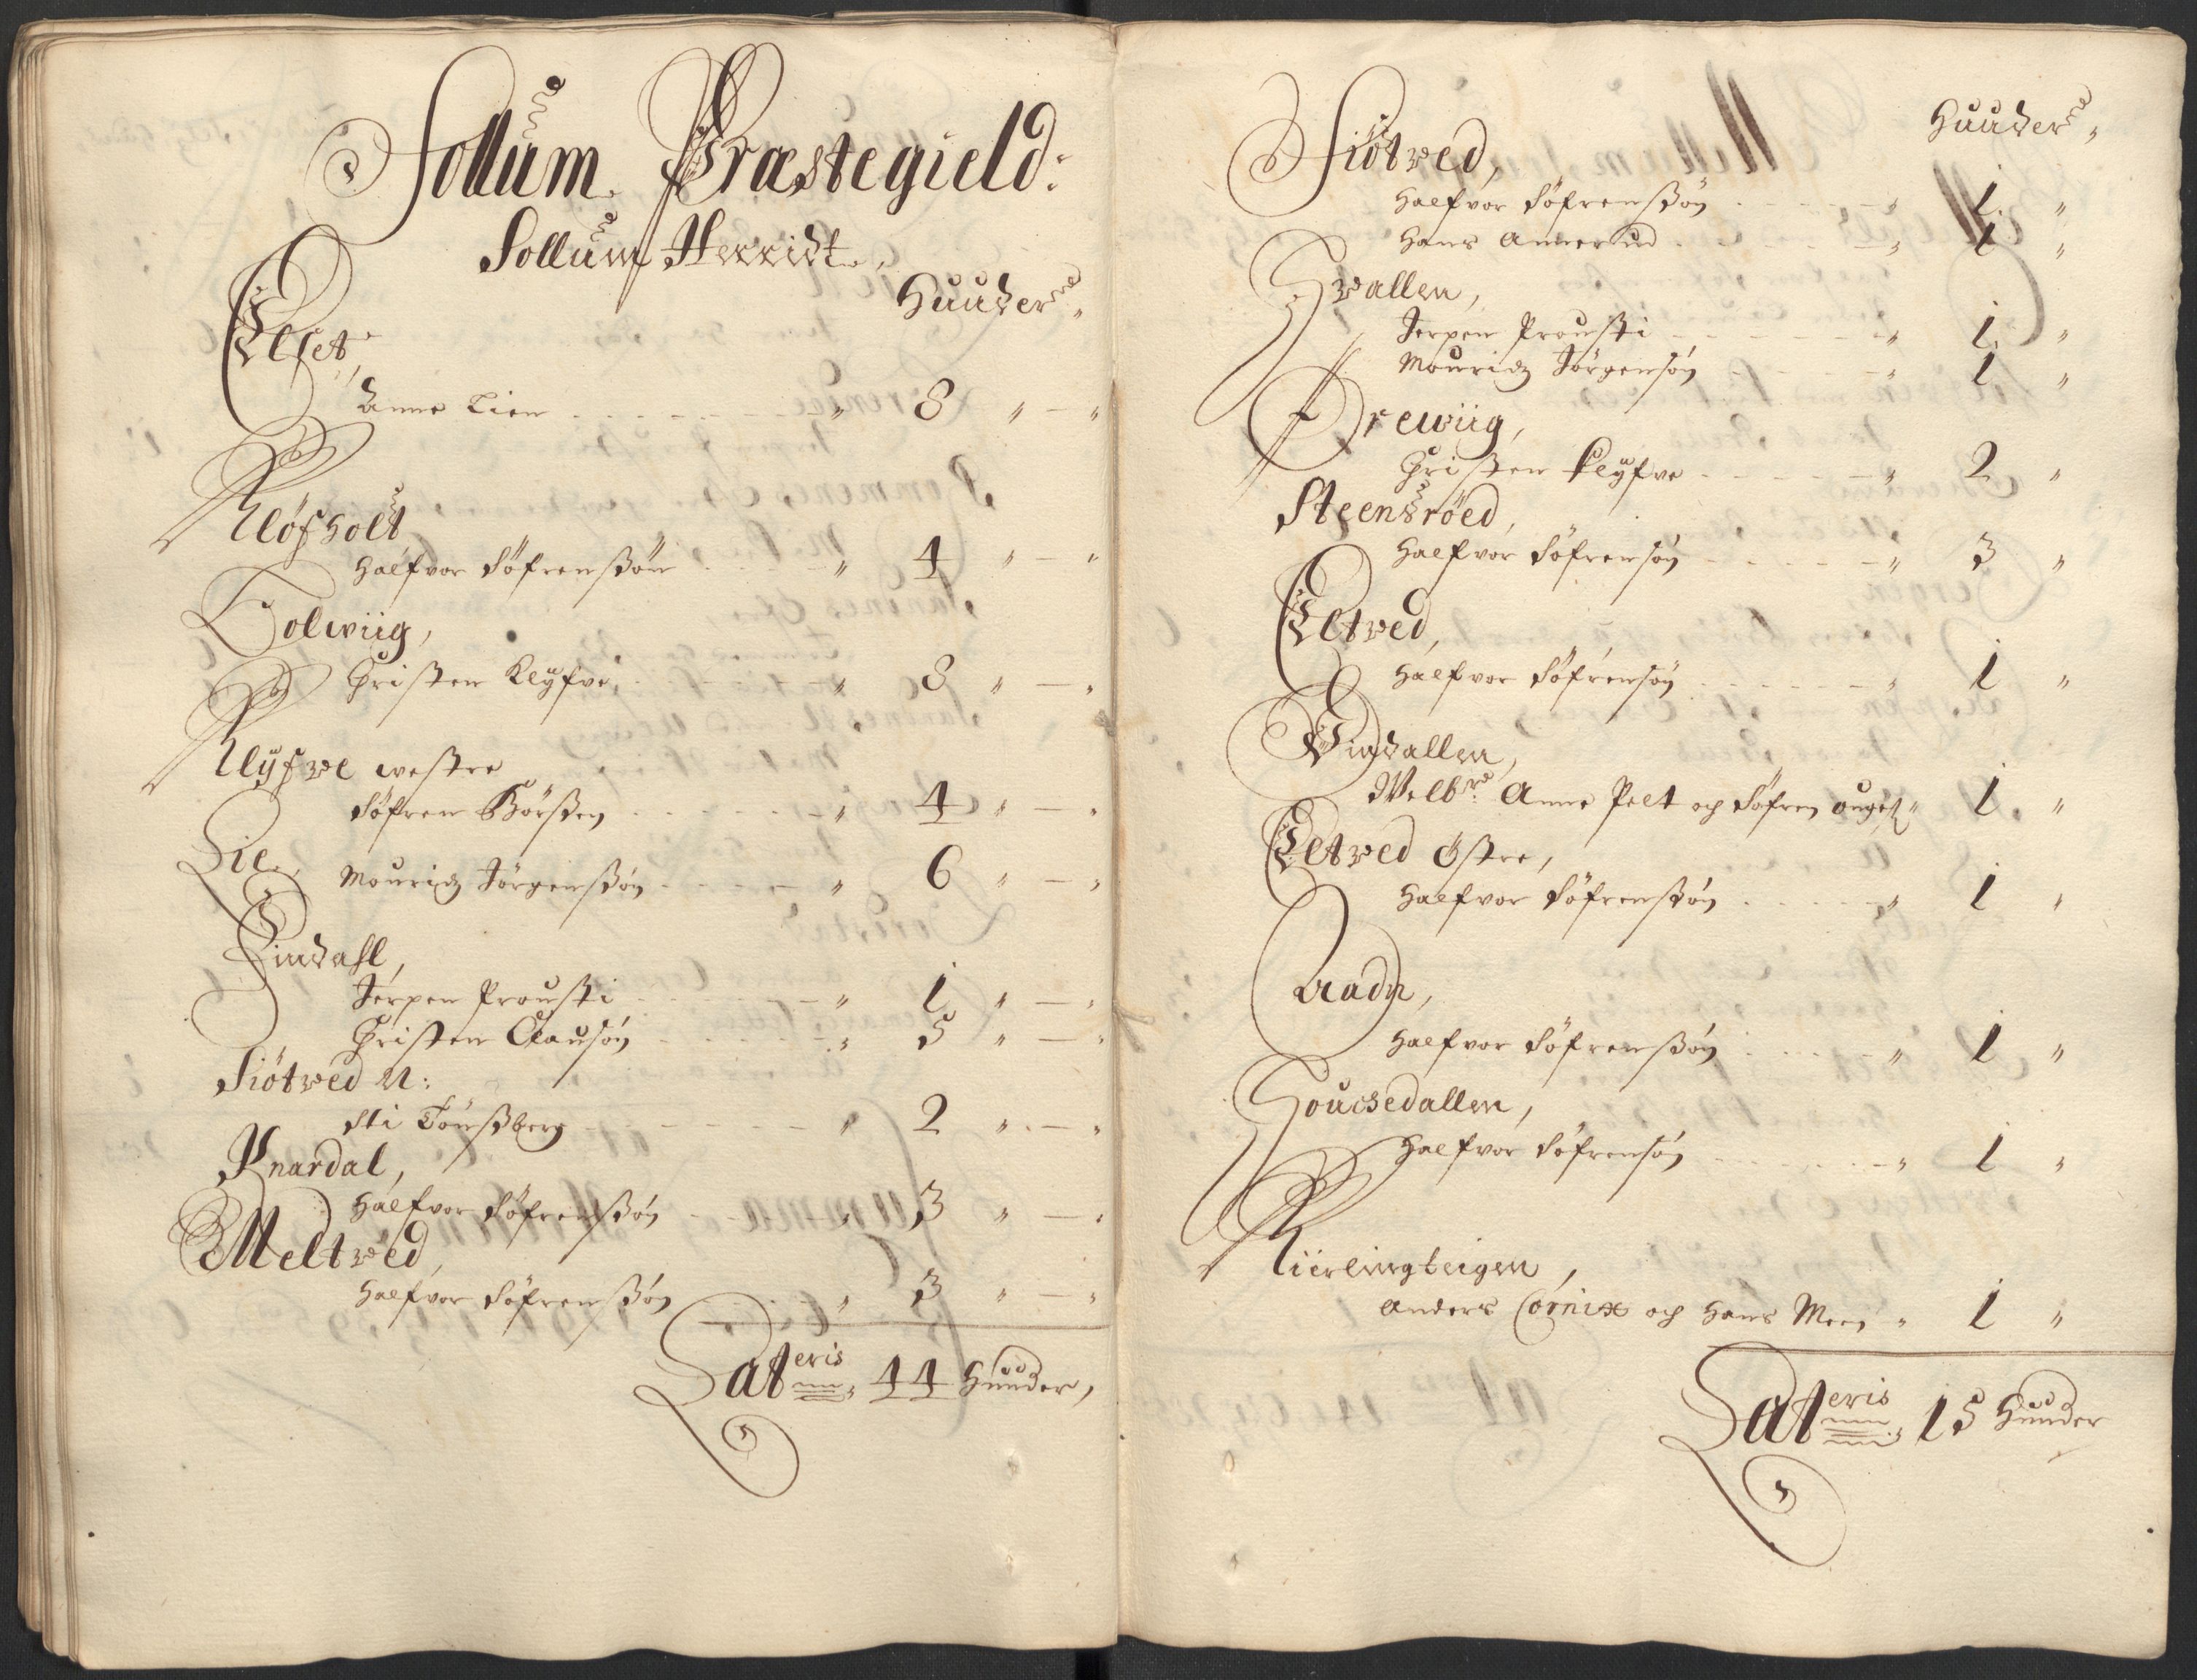 Sollum Præstegield:
Sollum Herridt,
Huuder
Elset,
Anne Lien 8
Kløfholt
Halfvor Söfrensßön 4
Tolwiig,
Christen Klÿfve 8
Klÿfve westre
Söfren Börßen 4
Lie,
Mouridz Jörgensßön 6
Lindahl,
Jerpen Prousti 1
Christen Clausön 5
Siötved N:
Sti Tönsßberg 2
Knardal,
Halfvor Söfrensßön 3
Meltved,
Halfvor Söfrensßön 3
Lateris 44 Huuder,
Huuder
Siötved,
Halfvor Söfrensßön 1
Hans Annerud 1
Hvallen,
Jerpen Prousti 1
Mouridz Jörgensön 1
Drewiig,
Christen Klÿfve 2
Steensröed,
Halfvor Söfrensön 3
Eltved,
Halfvor Söfrensön 1
Vindallen,
Welb: Anne Pelt og Söfren 1
Eltved östre,
Halfvor Söfrensßön 1
Halfvor Söfrensßön 1
Halfvor Söfrensön 1
Kiierlingteigen,
Anders Cornix og Hans Meen 1
Lateris 15 Huuder